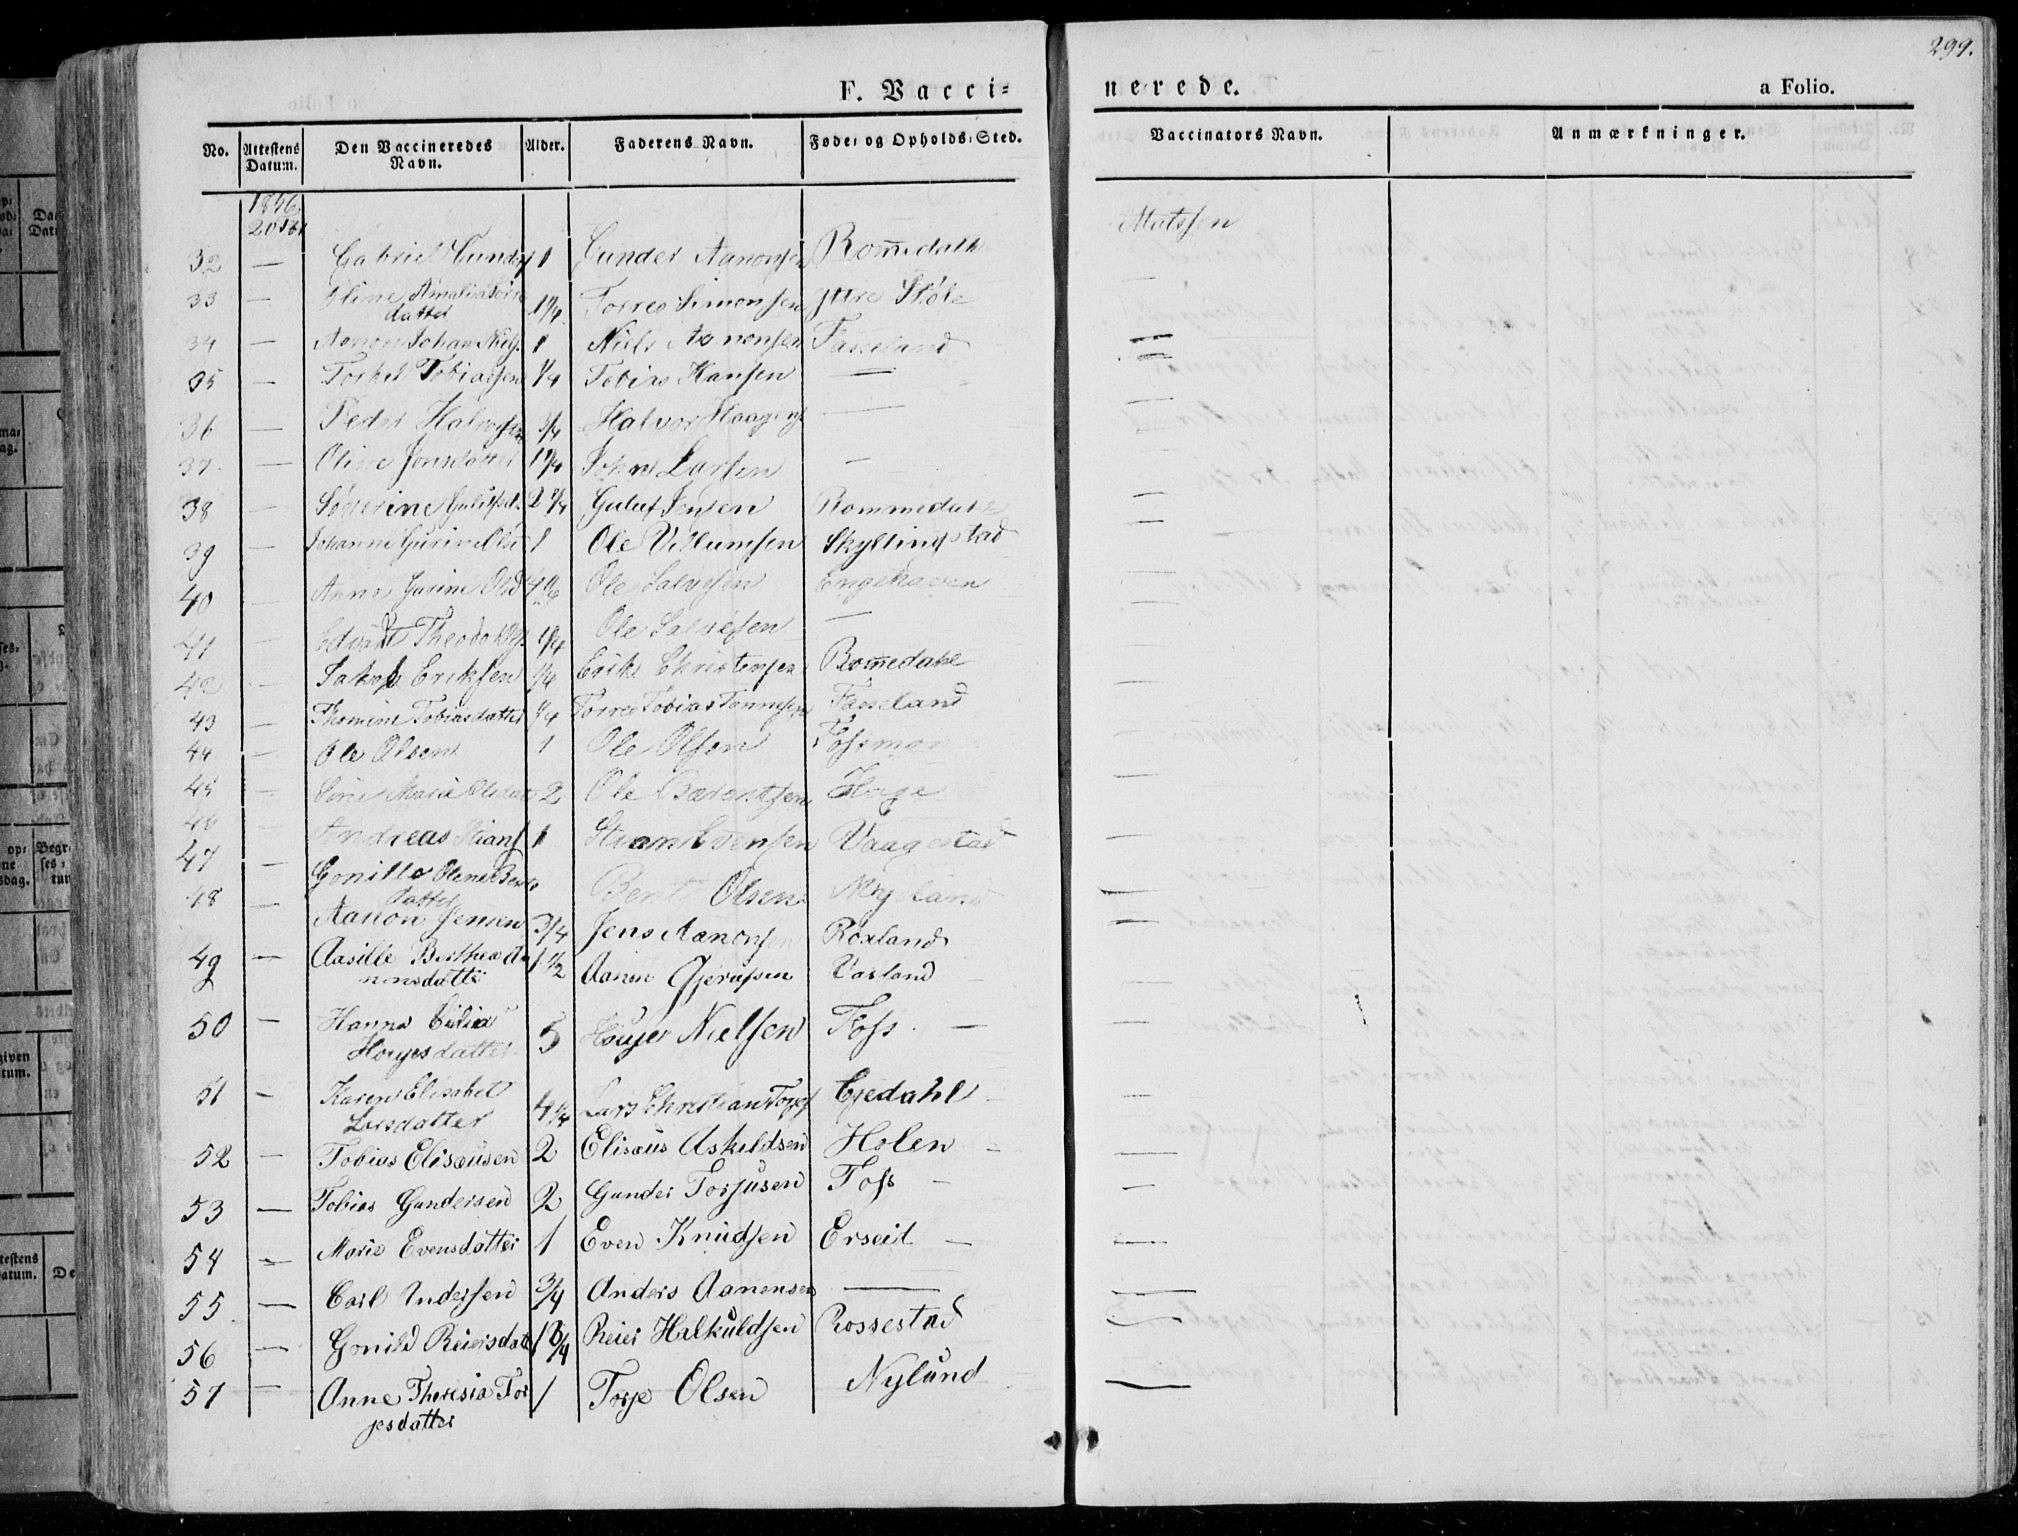 299.
F. Vacci=
nerede.
a Folio.
No. Attestens Datum. Den Vaccineredes Navn. Alder. Faderens Navn. Føde= og Opholds=Sted. Vaccinators Navn. Anmærkninger.
1846
32 — Gabriel Gunders 1 Gunder Aanonsen Rom̄edahl Matssen
33 — Amalia Torres
datter 1 1/4 Torres Simonsen Yttre Støle —
34 — Aanon Johan Niels. 1 Niels Aanonsen Fasseland —
35 — Torkel Tobiassen 1/4 Tobias Hansen — —
36 — Peder Halvorsen 3/4 Halvor Haagens — —
37 — Oline Jonsdatter 1 1/4 John Larsen — —
38 — Sørerine 2 1/4 Guluf Jensen Rommedahl —
39 — Johanne Gurine Ols 1 Ole Villumsen Skyllingstad —
40 — Anne Gurine Olsd Ole Salvesen Engehaven —
41 — Edvart Theodor 1 1/4 Ole Salvesen — —
42 — Jakob Eriksen 1/4 Erik Christensen Rom̄edahl —
43 — Thomine Tobiasdatter 1/4 Torres Tobias Tønnesen Fasseland —
44 — Ole Olsen 1 Ole Olsen Fossmon —
45 — Marie 2 Ole Bærentsen Hage —
46 — Andreas Stians 1 Stian Evensen Vaagestad —
47 — Gonille Olene Bents
datter Bent Olsen Myeland —
48 — Aanon Jensen 3/4 Jens Aanonsen Roxland —
49 — Aasille Berthea Aa
nonsdatter 1 1/2 Aanon Gjerulfsen Varland —
50 — Hanna Cicilia
Houjesdatter 5 Houjer Nielsen Foss —
51 — Karen Elisabet
Larsdatter 4 1/4 Lars Christian Torjes Egedahl —
52 — Tobias Elisæusen 2 Elisæus Askildsen Holen —
53 — Tobias Gundersen 2 Gunder Torjusen Foss —
54 — Marie Evensdatter 1 Even Knudsen Erseit —
55 — Carl Andersen 3/4 Anders Aanensen — —
56 — Gonild Reiersdatt 1 3/4 Reier Halkuldsen Rossestad —
57 — Anne Theresia Tor
jesdatter 1 Torje Olsen Nylund —